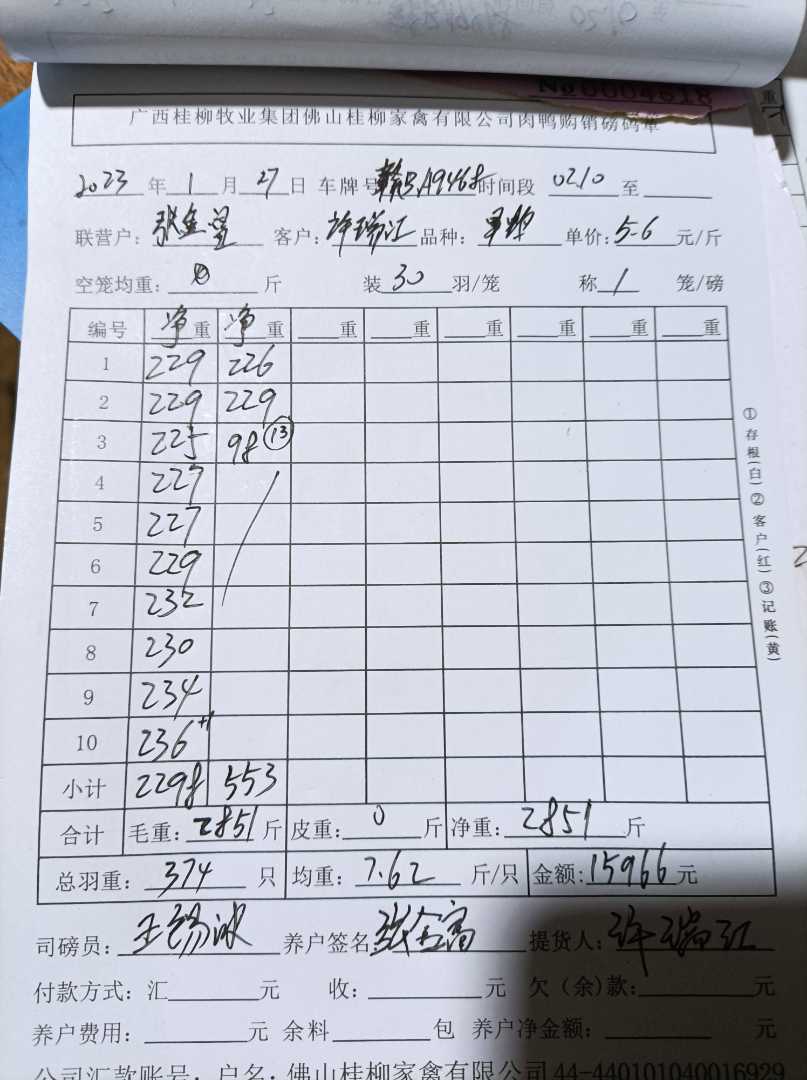 No 0004618
广西桂柳牧业集团佛山桂柳家禽有限公司肉鸭购销磅码单
2023 年 1 月 27 日 车牌号 时间段 0210 至
联营户: 客户: 许瑞江 品种: 单价: 5.6 元/斤
空笼均重: 0 斤 装 30 羽/笼 称 1 笼/磅
编号 净重 净重 重 重 重 重 重 重
1 229 226
2 229 229
3 225 98 ⑬
4 227
5 227
6 229
7 232
8 230
9 234
10 236 +1
小计 2298 553
合计 毛重: 2851 斤 皮重: 0 斤 净重: 2851 斤
总羽重: 374 只 均重: 7.62 斤/只 金额: 15966 元
司磅员: 王锡冰 养户签名 提货人: 许瑞江
付款方式: 汇 元 收: 元 欠(余)款: 元
养户费用: 元 余料 包 养户净金额: 元
公司汇款账号: 户名: 佛山桂柳家禽有限公司 44-440101040016929
①存根(白)②客户(红)③记账(黄)